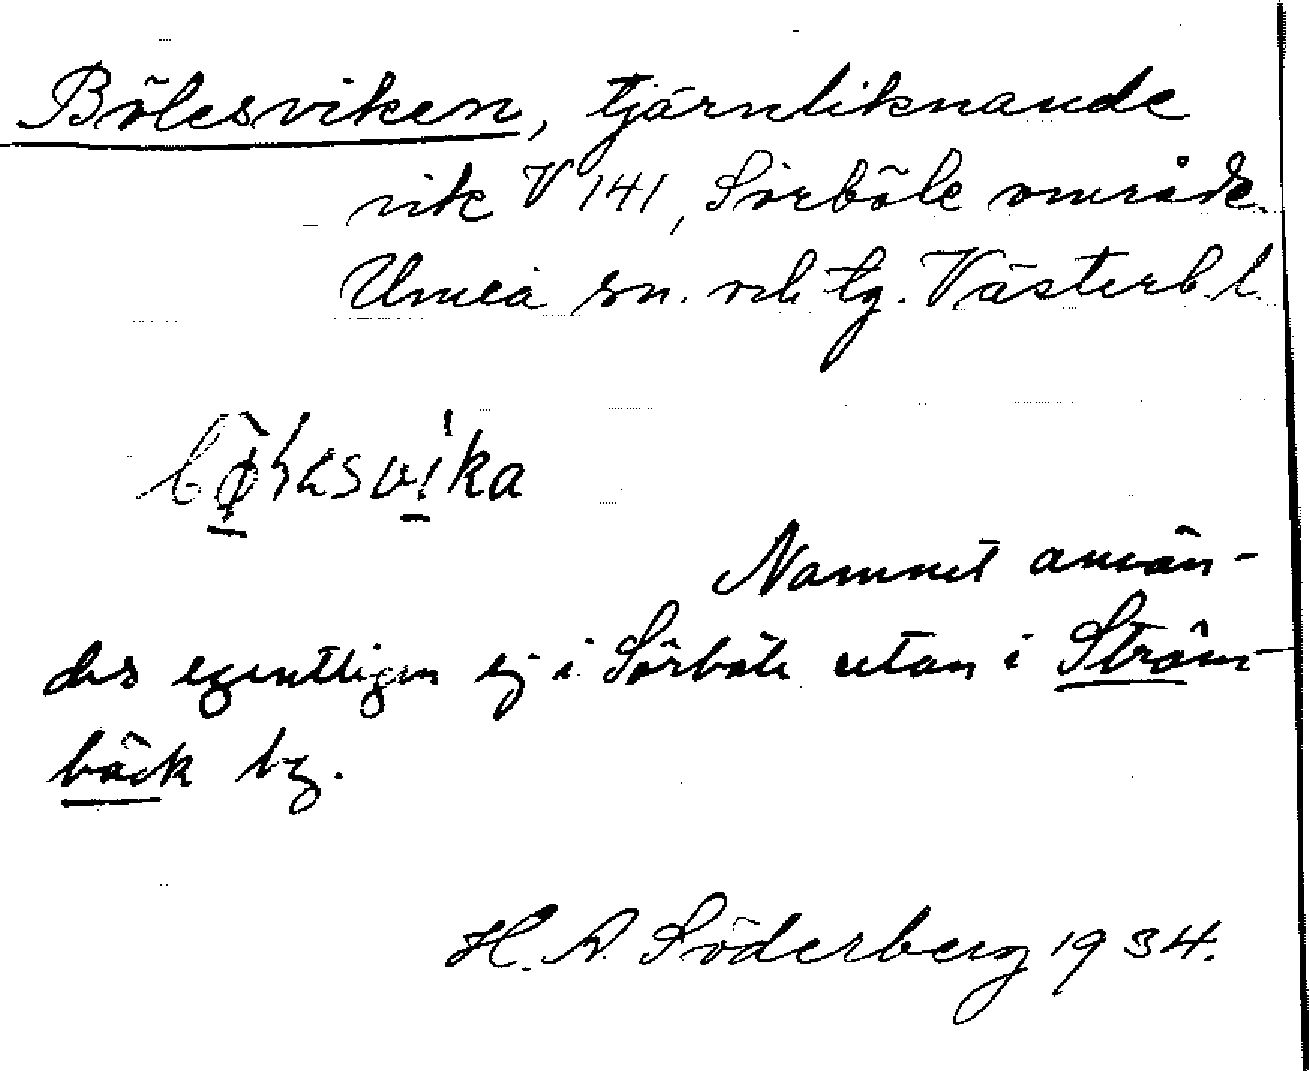 Bölesviken, tjärnliknande
vik V 141, Sörböle område.
Umeå sn. och tg. Västerb. l.
Namnet använ-
des egentligen ej i Sörböle utan i Ström-
bäck by.
H. A. Söderberg 1934.